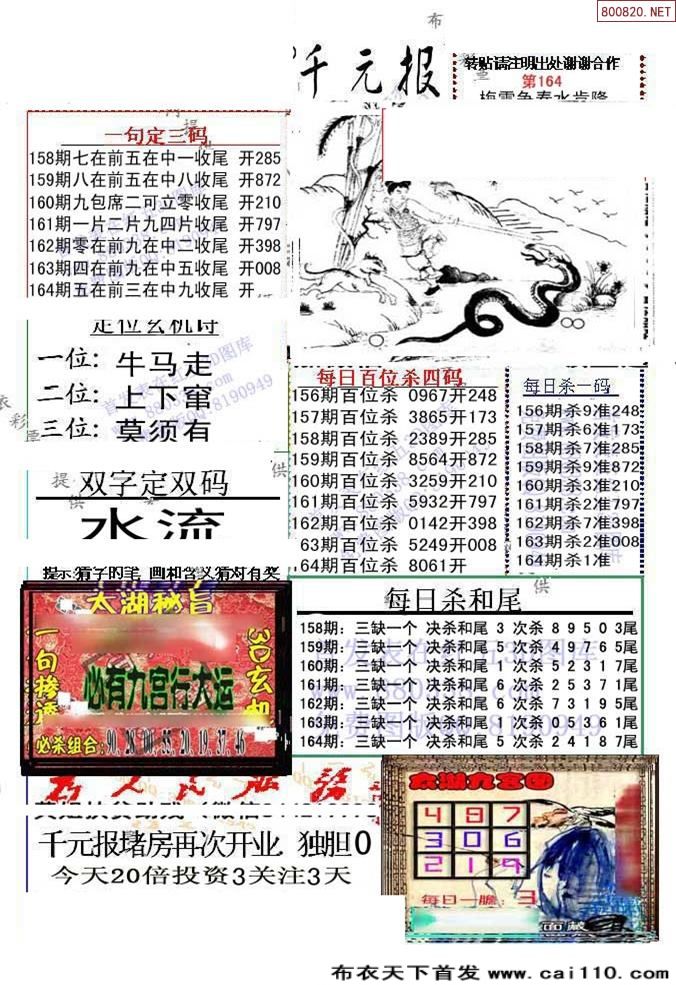 800820.NET
布
千元报
转贴请注明出处谢谢合作
第164
梅雪争春水肯降
一句定三码
158期七在前五在中一收尾 开285
159期八在前五在中八收尾 开872
160期九包席二可立零收尾 开210
161期一片二片九四片收尾 开797
162期零在前九在中二收尾 开398
163期四在前九在中五收尾 开008
164期五在前三在中九收尾 开
定位玄机诗
一位: 牛马走
二位: 上下窜
三位: 莫须有
双字定双码
水流
提示:猜字的笔 画和含义猜对有奖
每日百位杀四码
156期百位杀 0967开248
157期百位杀 3865开173
158期百位杀 2389开285
159期百位杀 8564开872
160期百位杀 3259开210
161期百位杀 5932开797
162期百位杀 0142开398
63期百位杀 5249开008
64期百位杀 8061开
每日杀一码
156期杀9准248
157期杀6准173
158期杀7准285
159期杀9准872
160期杀3准210
161期杀2准797
162期杀7准398
163期杀2准008
164期杀1准
太湖秘旨
一句掺透
3D玄机
必有九宫行大运
必杀组合:90.28.00.55.20.19.37.46
每日杀和尾
158期: 三缺一个 决杀和尾 3 次杀 8 9 5 0 3尾
159期: 三缺一个 决杀和尾 5 次杀 4 9 7 6 5尾
160期: 三缺一个 决杀和尾 1 次杀 5 2 3 1 7尾
161期: 三缺一个 决杀和尾 6 次杀 2 5 3 7 1尾
162期: 三缺一个 决杀和尾 6 次杀 7 3 1 9 5尾
163期: 三缺一个 决杀和尾 5 次杀 0 5 3 6 1尾
164期: 三缺一个 决杀和尾 5 次杀 2 4 1 8 7尾
千元报堵房再次开业 独胆0
今天20倍投资3关注3天
太湖九宫图
4 8 7
3 0 6
2 1 9
每日一胆: 3
布衣天下首发 www.cai110.com